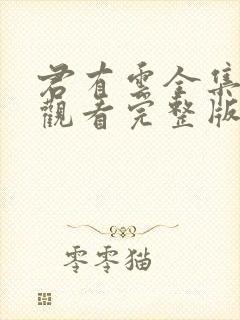 君有雲全集
觀看完整版
零零猫